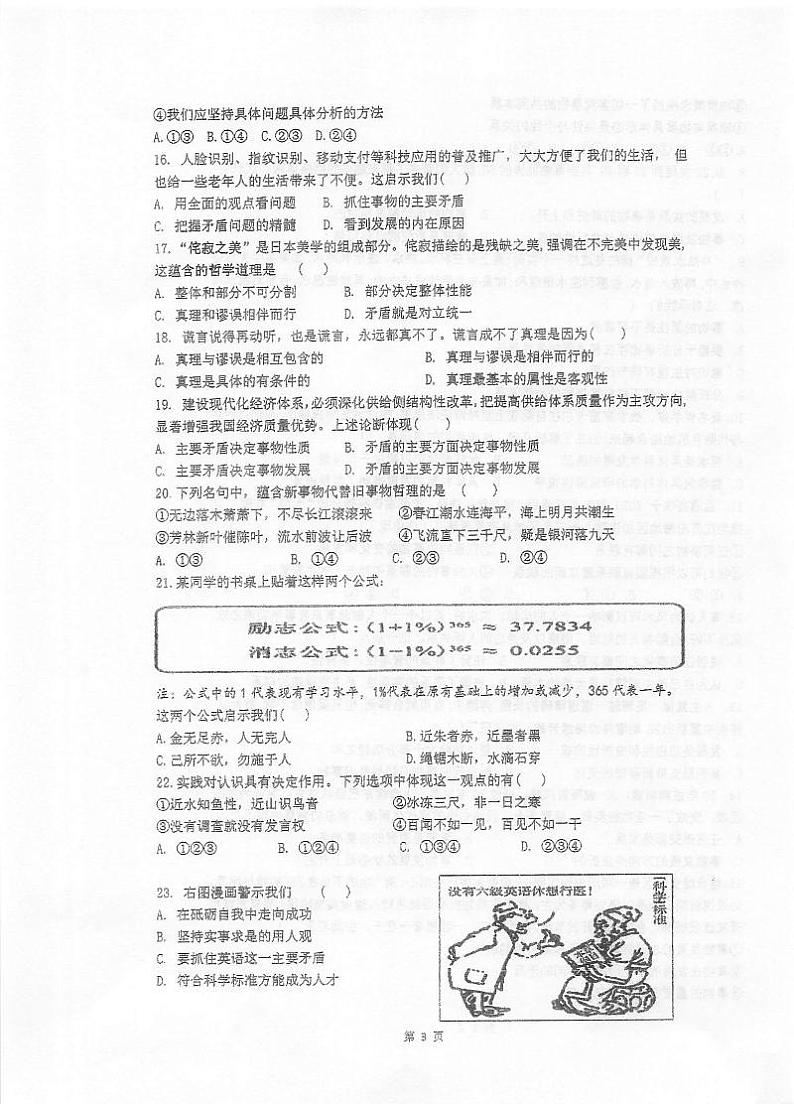 ④我们应坚持具体问题具体分析的方法
A.①③ B.①④ C.②③ D.②④
16. 人脸识别、指纹识别、移动支付等科技应用的普及推广，大大方便了我们的生活， 但
也给一些老年人的生活带来了不便。这启示我们( )
A. 用全面的观点看问题 B. 抓住事物的主要矛盾
C. 把握矛盾问题的精髓 D. 看到发展的内在原因
17. “侘寂之美”是日本美学的组成部分。侘寂描绘的是残缺之美,强调在不完美中发现美,
这蕴含的哲学道理是 ( )
A. 整体和部分不可分割 B. 部分决定整体性能
C. 真理和谬误相伴而行 D. 矛盾就是对立统一
18. 谎言说得再动听，也是谎言，永远都真不了。谎言成不了真理是因为( )
A. 真理与谬误是相互包含的 B. 真理与谬误是相伴而行的
C. 真理是具体的有条件的 D. 真理最基本的属性是客观性
19. 建设现代化经济体系,必须深化供给侧结构性改革,把提高供给体系质量作为主攻方向,
显著增强我国经济质量优势。上述论断体现( )
A. 主要矛盾决定事物性质 B. 矛盾的主要方面决定事物性质
C. 主要矛盾决定事物发展 D. 矛盾的主要方面决定事物发展
20. 下列名句中，蕴含新事物代替旧事物哲理的是 ( )
①无边落木萧萧下，不尽长江滚滚来 ②春江潮水连海平，海上明月共潮生
③芳林新叶催陈叶，流水前波让后波 ④飞流直下三千尺，疑是银河落九天
A. ①③ B. ①④ C. ②③ D. ②④
21.某同学的书桌上贴着这样两个公式:
励志公式:(1+1%)365 ≈ 37.7834
消志公式:(1-1%)365 ≈ 0.0255
注：公式中的 1 代表现有学习水平，1%代表在原有基础上的增加或减少，365 代表一年。
这两个公式启示我们( )
A.金无足赤，人无完人 B.近朱者赤，近墨者黑
C.己所不欲，勿施于人 D.绳锯木断，水滴石穿
22.实践对认识具有决定作用。下列选项中体现这一观点的有( )
①近水知鱼性，近山识鸟音 ②冰冻三尺，非一日之寒
③没有调查就没有发言权 ④百闻不如一见，百见不如一干
A. ①②③ B. ①②④ C. ①③④ D. ②③④
23. 右图漫画警示我们 ( )
A. 在砥砺自我中走向成功
B. 坚持实事求是的用人观
C. 要抓住英语这一主要矛盾
D. 符合科学标准方能成为人才
没有六级英语休想行医!
科学标准
第 3 页